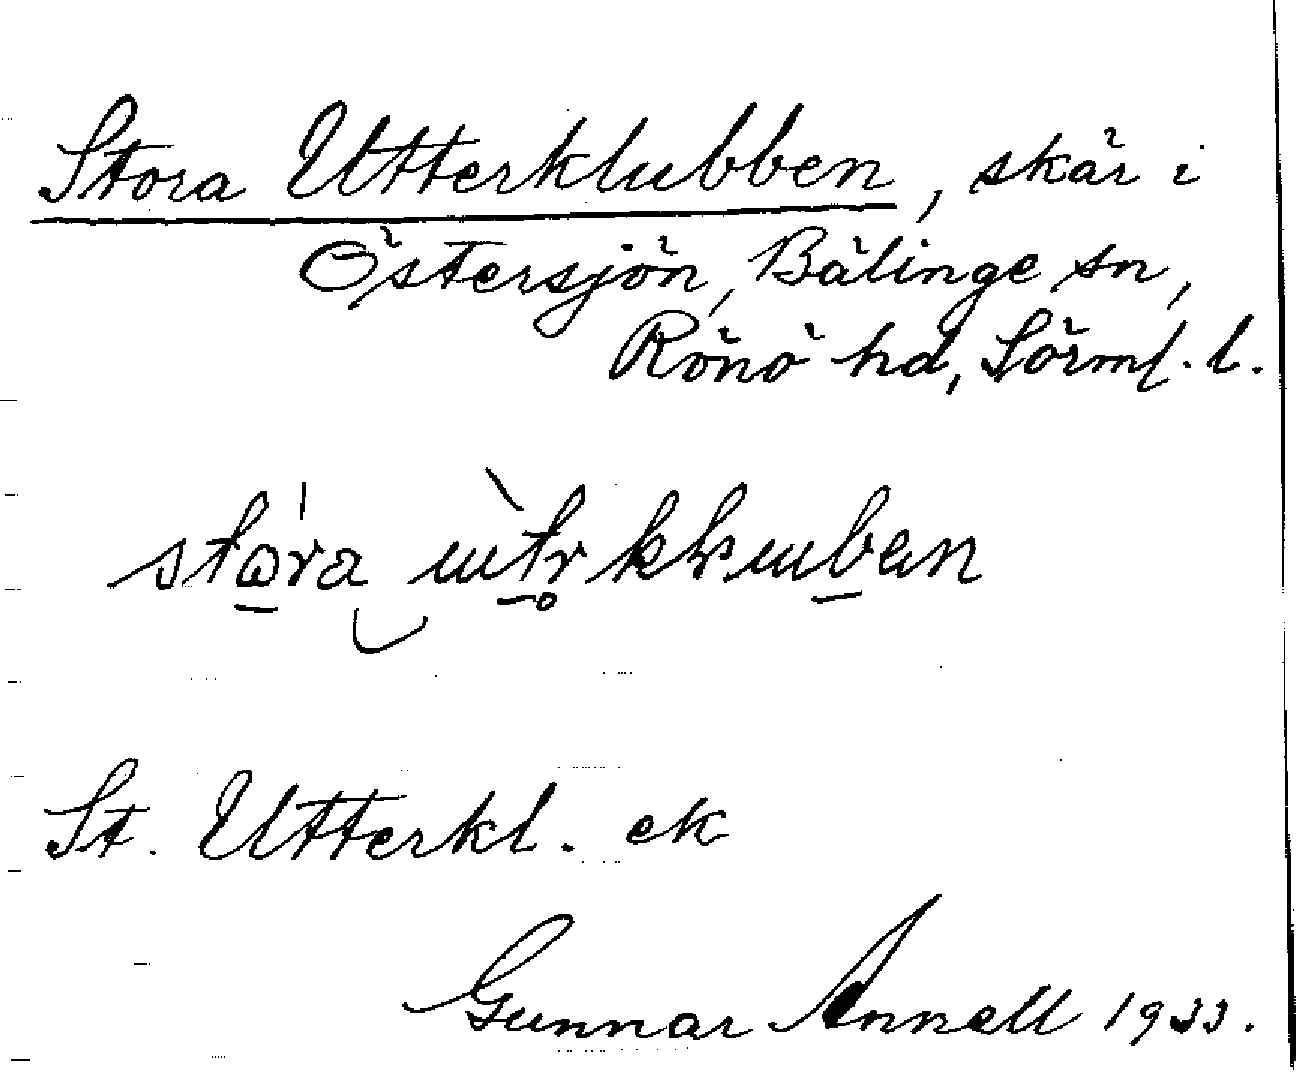 Stora Utterklubben, skär i
Östersjön, Bälinge sn,
Rönö hd, Sörml. l.
St. Utterkl. ek
Gunnar Annell 1933.